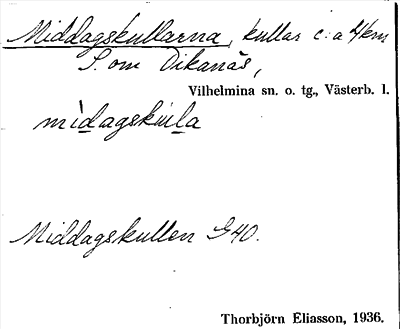 Middagskullarna, kullar c:a 4 km
S. om Dikanäs,
Vilhelmina sn. o. tg., Västerb. l.
Middagskullen G40.
Thorbjörn Eliasson, 1936.